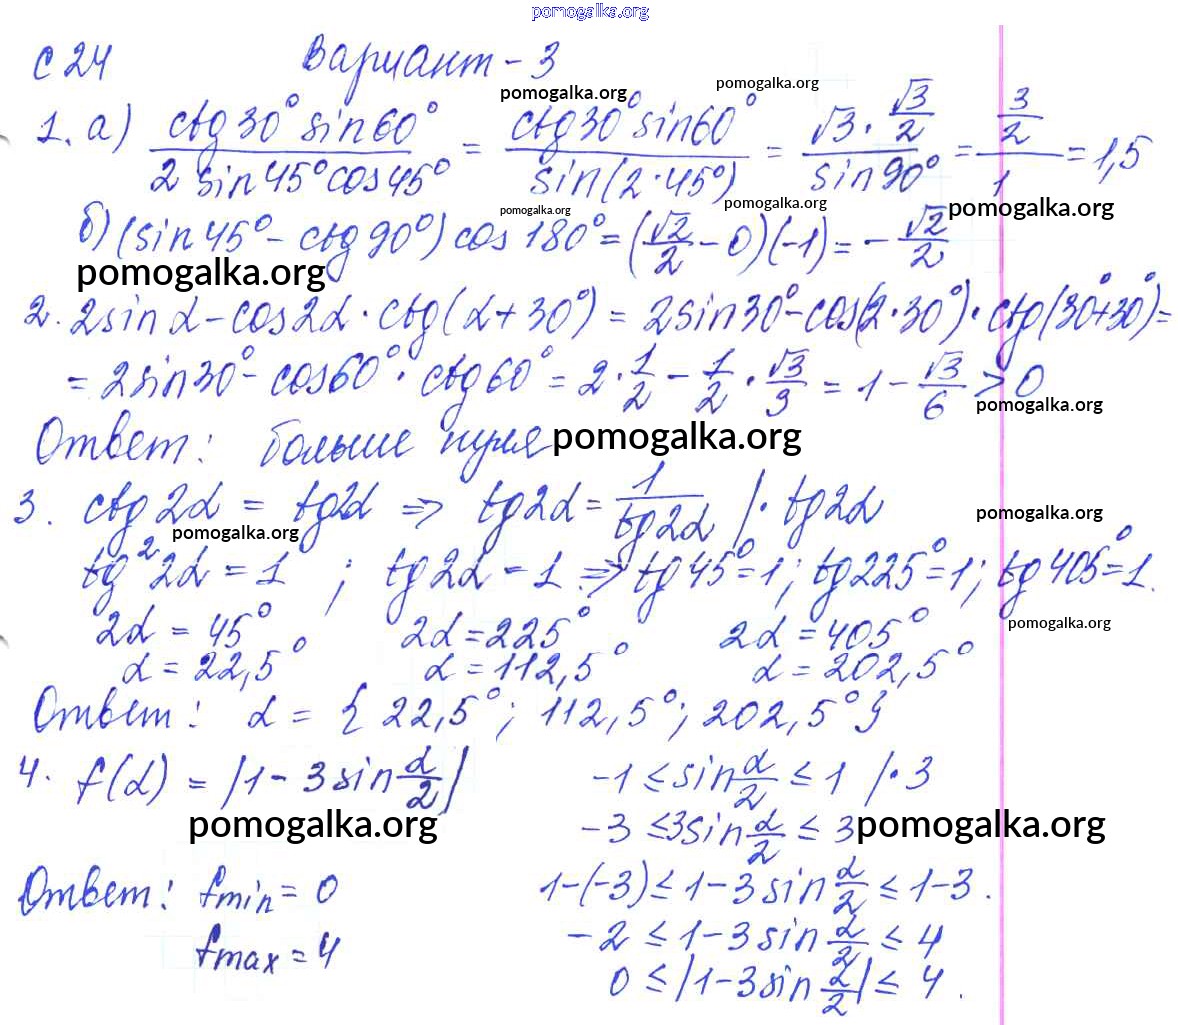 pomogalka.org
С 24 Вариант - 3
pomogalka.org pomogalka.org
1. а) ctg30° sin60° / 2 sin45°cos45° = ctg30° sin60° / sin(2·45°) = √3 · √3/2 / sin90° = 3/2 / 1 = 1,5
pomogalka.org pomogalka.org pomogalka.org
б) (sin45° - ctg90°) cos 180° = (√2/2 - 0)(-1) = - √2/2
pomogalka.org
2. 2sin α - cos2α · ctg(α + 30°) = 2sin30° - cos(2·30°) · ctg(30°+30°) =
= 2sin30° - cos60° · ctg60° = 2 · 1/2 - 1/2 · √3/3 = 1 - √3/6 > 0
pomogalka.org
Ответ: больше нуля
pomogalka.org
3. ctg2α = tg2α => tg2α = 1/tg2α |· tg2α
pomogalka.org pomogalka.org
tg²2α = 1 ; tg2α = 1 => tg45° = 1; tg225° = 1; tg405° = 1.
pomogalka.org
2α = 45° 2α = 225° 2α = 405°
α = 22,5° α = 112,5° α = 202,5°
Ответ: α = { 22,5°; 112,5°; 202,5°}
4. f(α) = |1 - 3sin α/2| -1 ≤ sin α/2 ≤ 1 |· 3
pomogalka.org -3 ≤ 3sin α/2 ≤ 3 pomogalka.org
Ответ: fmin = 0 1-(-3) ≤ 1-3 sin α/2 ≤ 1-3.
fmax = 4 -2 ≤ 1-3 sin α/2 ≤ 4
0 ≤ |1-3sin α/2| ≤ 4.